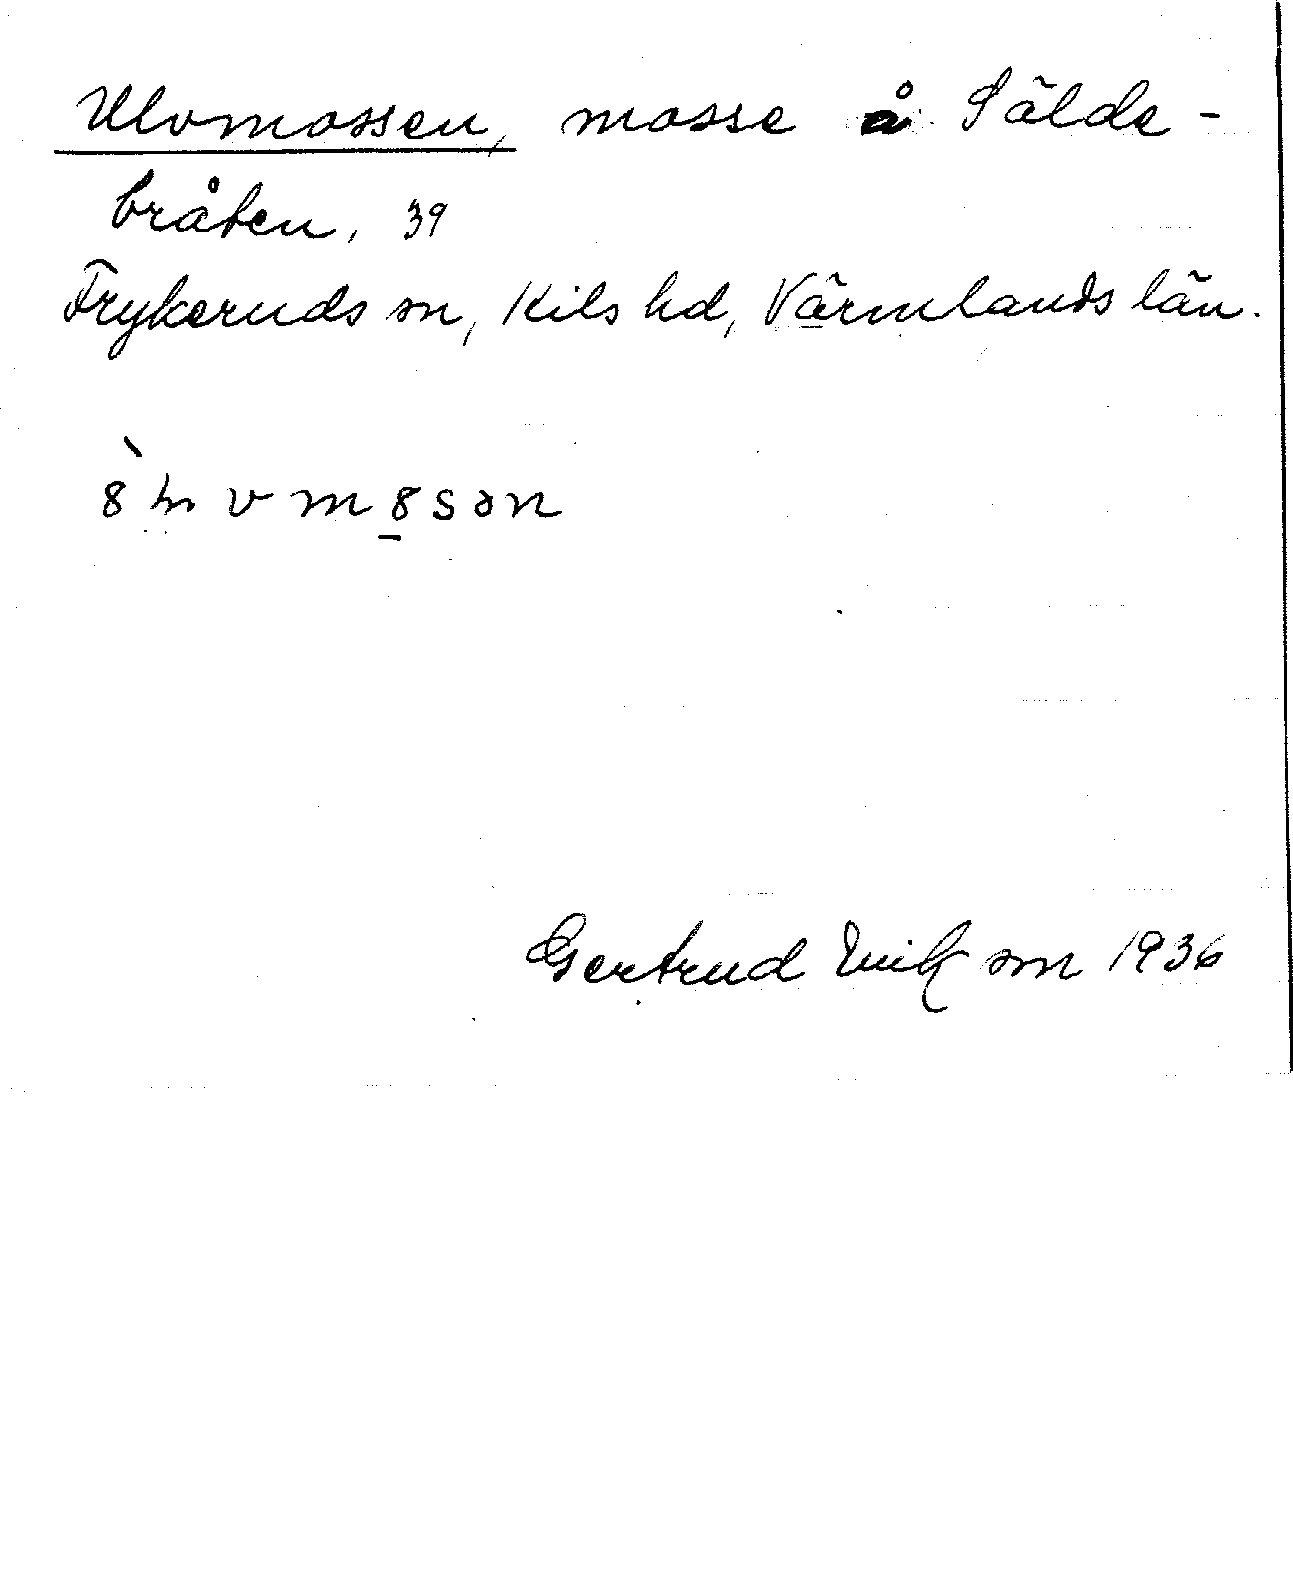 Ulvmossen, mosse å Sälde-
bråten, 39
Frykeruds sn, Kils hd, Värmlands län.
Gertrud Eriksson 1936